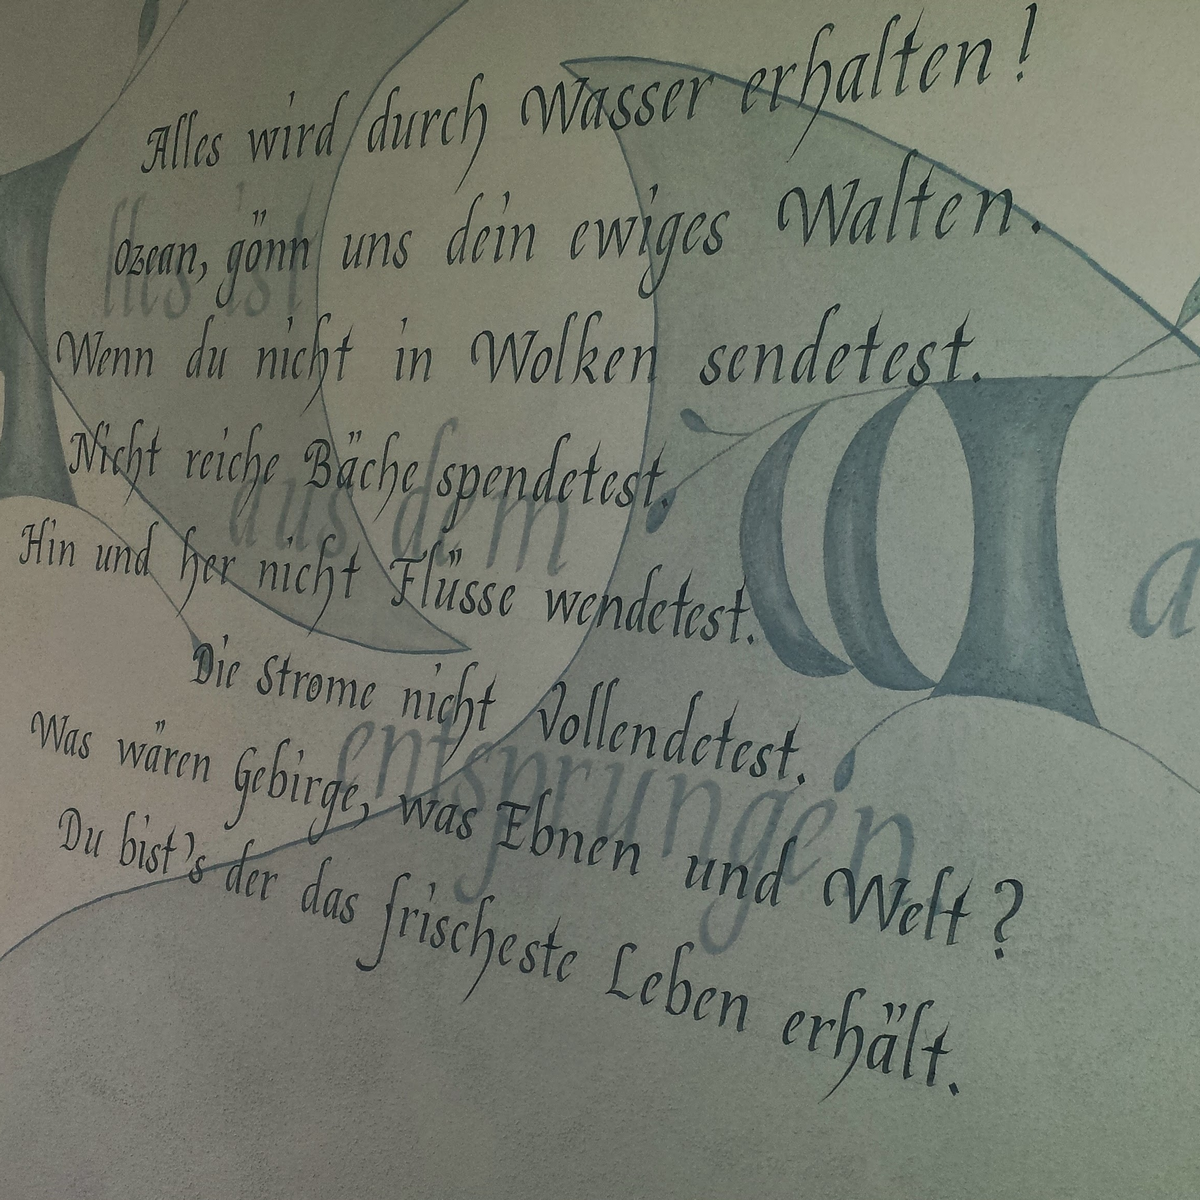 Alles wird durch Wasser erhalten!
Ozean, gönn uns dein ewiges Walten.
Wenn du nicht in Wolken sendetest.
Nicht reiche Bäche spendetest.
Hin und her nicht Flüsse wendetest.
Die Strome nicht vollendetest.
Was wären Gebirge, was Ebnen und Welt?
Du bist's der das frischeste Leben erhält.
lles ist
aus dem Wa
entsprungen